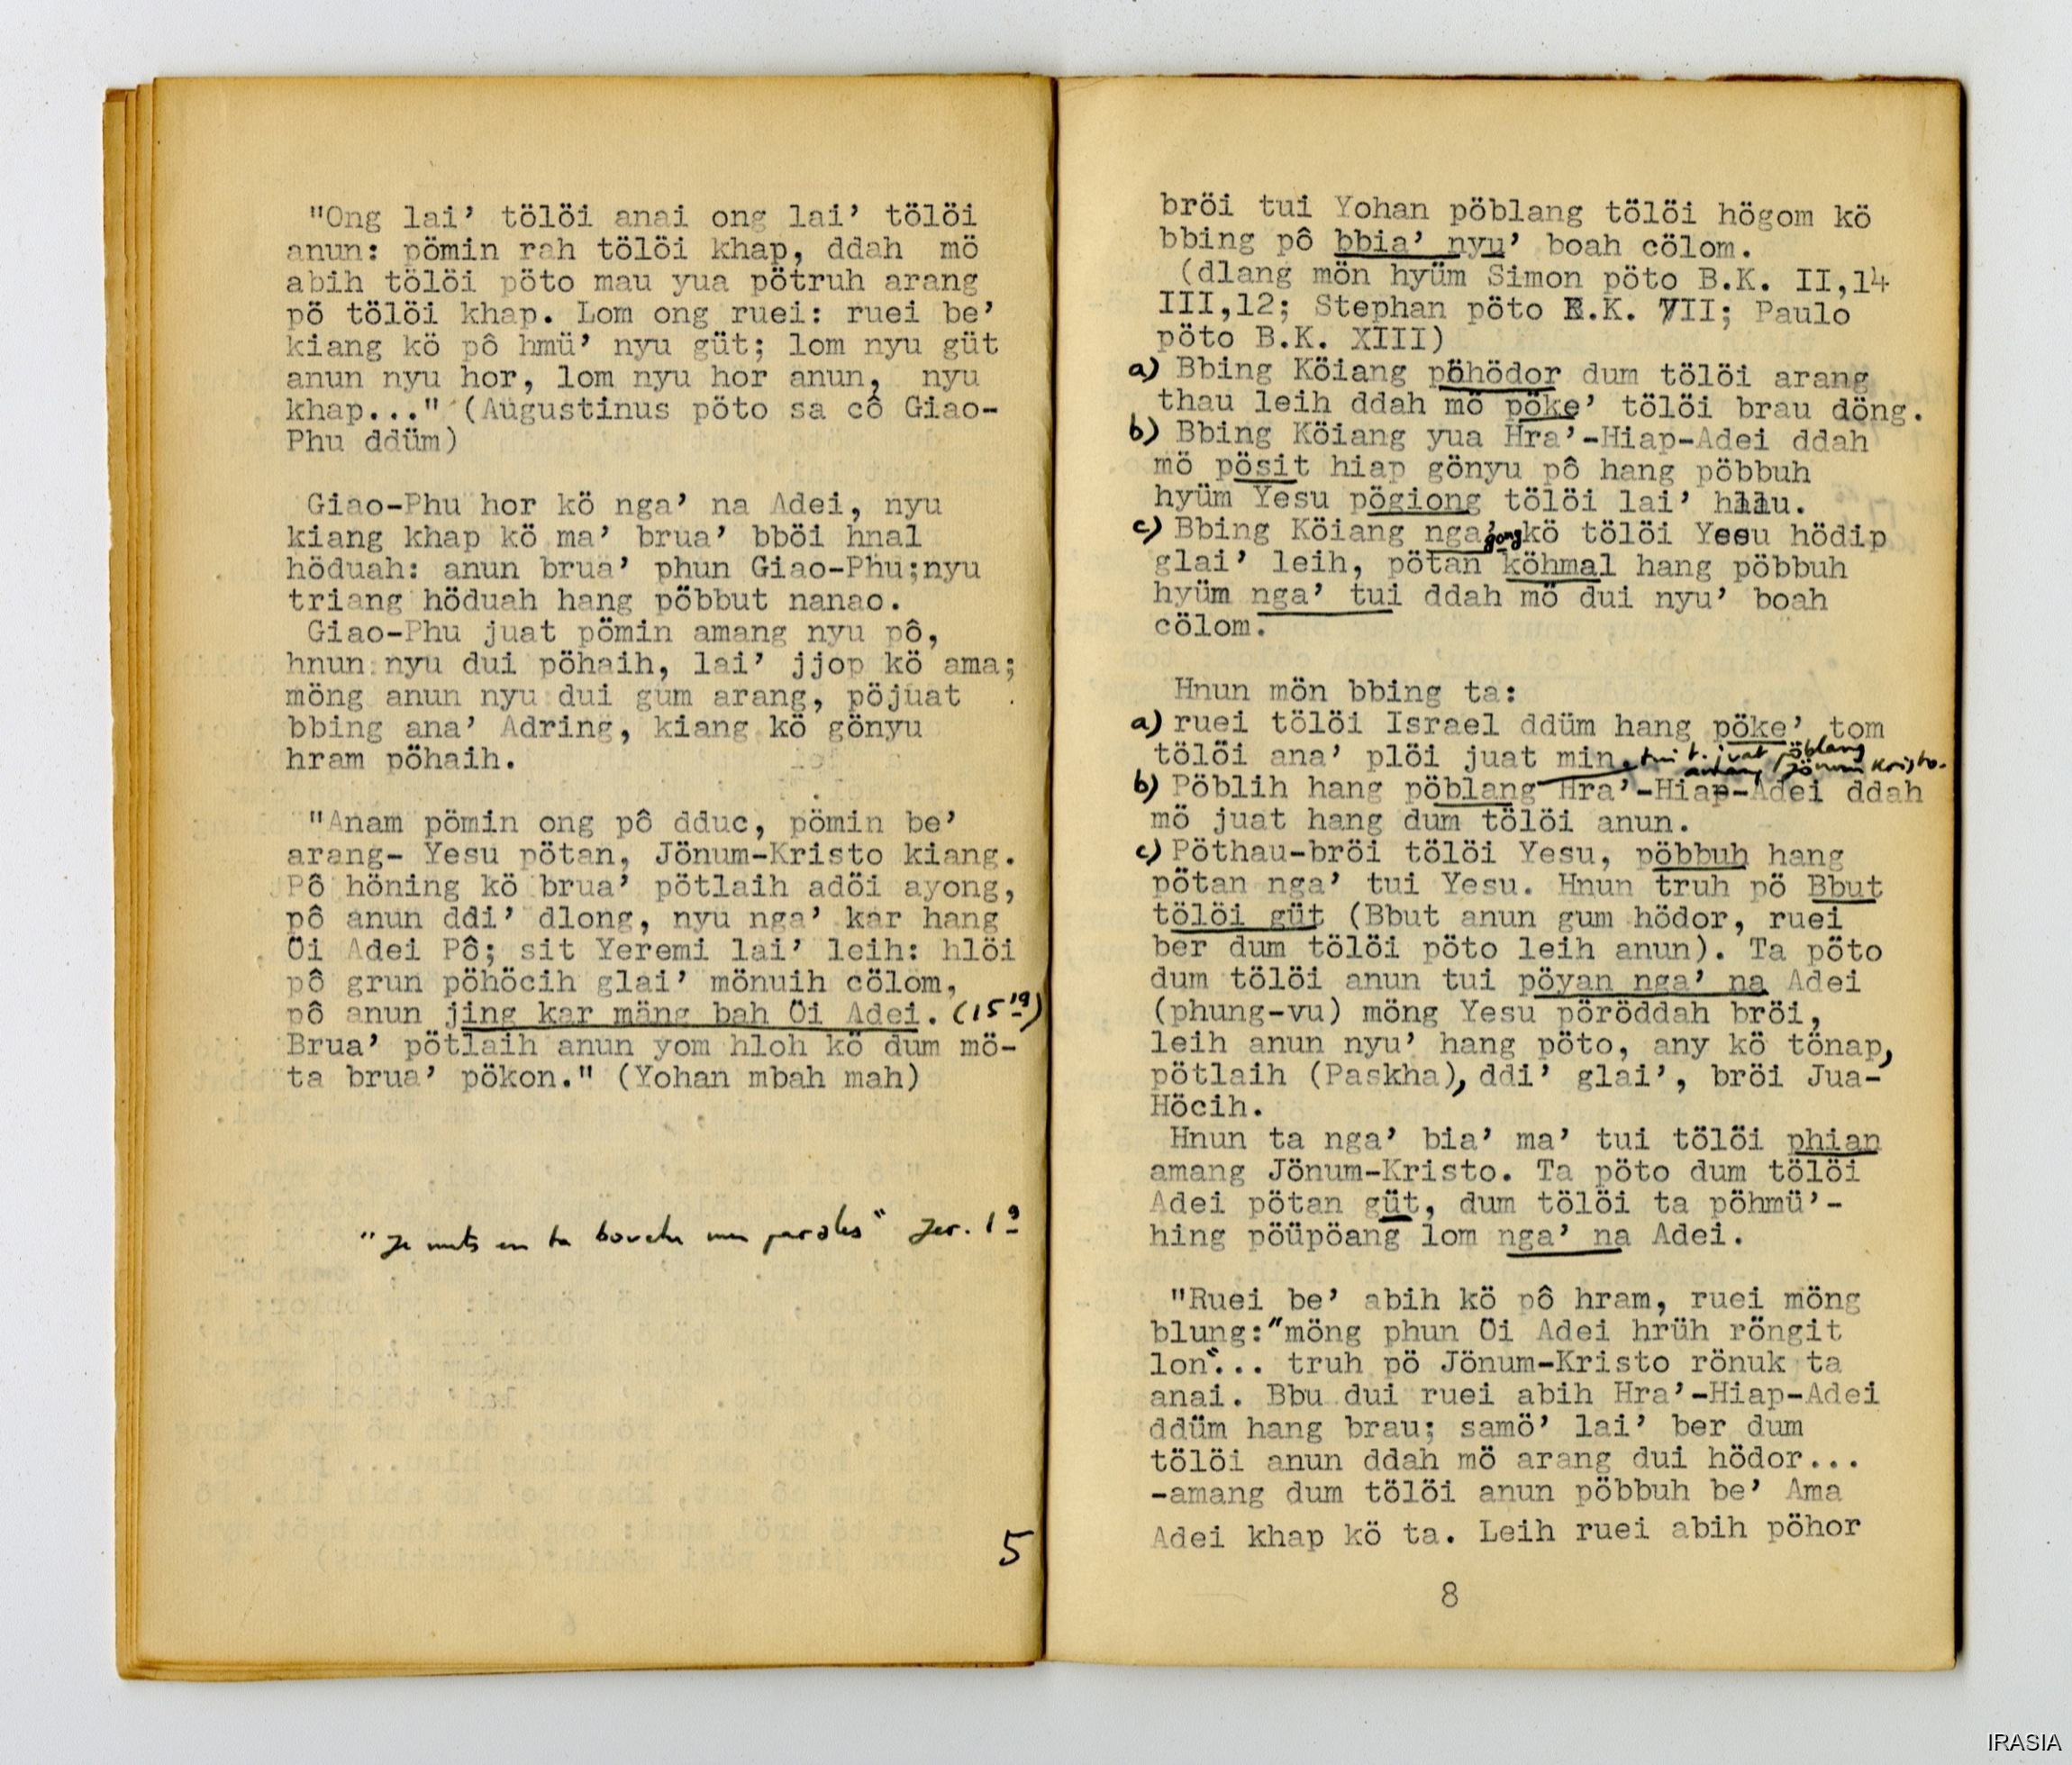 "Ong lai’ tölöi anai ong lai’ tölöi
anun: pömin rah tölöi khap, ddah mö
abih tölöi pöto mau yua pötruh arang
pö tölöi khap. Lom ong ruei: ruei be’
kiang kö pô hmü’ nyu güt; lom nyu güt
anun nyu hor, lom nyu hor anun, nyu
khap..." (Augustinus pöto sa cô Giao-
Phu ddüm)
Giao-Phu hor kö nga’ na Adei, nyu
kiang khap kö ma’ brua’ bböi hnal
höduah: anun brua’ phun Giao-Phu;nyu
triang höduah hang pöbbut nanao.
Giao-Phu juat pömin amang nyu pô,
hnun nyu dui pöhaih, lai’ jjop kö ama;
möng anun nyu dui gum arang, pöjuat
bbing ana’ Adring, kiang kö gönyu
hram pöhaih.
"Anam pömin ong pô dduc, pömin be’
arang- Yesu pötan, Jönum-Kristo kiang.
Pô höning kö brua’ pötlaih adöi ayong,
pô anun ddi’ dlong, nyu nga’ kar hang
Öi Adei Pô; sit Yeremi lai’ leih: hlöi
pô grun pöhöcih glai’ mönuih cölom,
pô anun jing kar mäng bah Öi Adei. (15 19)
Brua’ pötlaih anun yom hloh kö dum mö-
ta brua’ pökon." (Yohan mbah mah)
"Je mets en ta bouche mes paroles" Jer. 1 9
5
bröi tui Yohan pöblang tölöi högom kö
bbing pô bbia’ nyu’ boah cölom.
(dlang mön hyüm Simon pöto B.K. II,14
III,12; Stephan pöto B.K. VII; Paulo
pöto B.K. XIII)
a) Bbing Köiang pöhödor dum tölöi arang
thau leih ddah mö pöke’ tölöi brau döng.
b) Bbing Köiang yua Hra’-Hiap-Adei ddah
mö pösit hiap gönyu pô hang pöbbuh
hyüm Yesu pögiong tölöi lai’ hlâu.
c) Bbing Köiang nga’ gong kö tölöi Yesu hödip
glai’ leih, pötan köhmal hang pöbbuh
hyüm nga’ tui ddah mö dui nyu’ boah
cölom.
Hnun mön bbing ta:
a) ruei tölöi Israel ddüm hang pöke’ tom
tölöi ana’ plöi juat min, tui t. juat pöblang
amang Jönum Kristo.
b) Pöblih hang pöblang Hra’-Hiap-Adei ddah
mö juat hang dum tölöi anun.
c) Pöthau-bröi tölöi Yesu, pöbbuh hang
pötan nga’ tui Yesu. Hnun truh pö Bbut
tölöi güt (Bbut anun gum hödor, ruei
ber dum tölöi pöto leih anun). Ta pöto
dum tölöi anun tui pöyan nga’ na Adei
(phung-vu) möng Yesu pöröddah bröi,
leih anun nyu’ hang pöto, any kö tönap,
pötlaih (Paskha), ddi’ glai’, bröi Jua-
Höcih.
Hnun ta nga’ bia’ ma’ tui tölöi phian
amang Jönum-Kristo. Ta pöto dum tölöi
Adei pötan güt, dum tölöi ta pöhmü’-
hing pöüpöang lom nga’ na Adei.
"Ruei be’ abih kö pô hram, ruei möng
blung:"möng phun Öi Adei hrüh röngit
lon"... truh pö Jönum-Kristo rönuk ta
anai. Bbu dui ruei abih Hra’-Hiap-Adei
ddüm hang brau; samö’ lai’ ber dum
tölöi anun ddah mö arang dui hödor...
-amang dum tölöi anun pöbbuh be’ Ama
Adei khap kö ta. Leih ruei abih pöhor
8
IRASIA